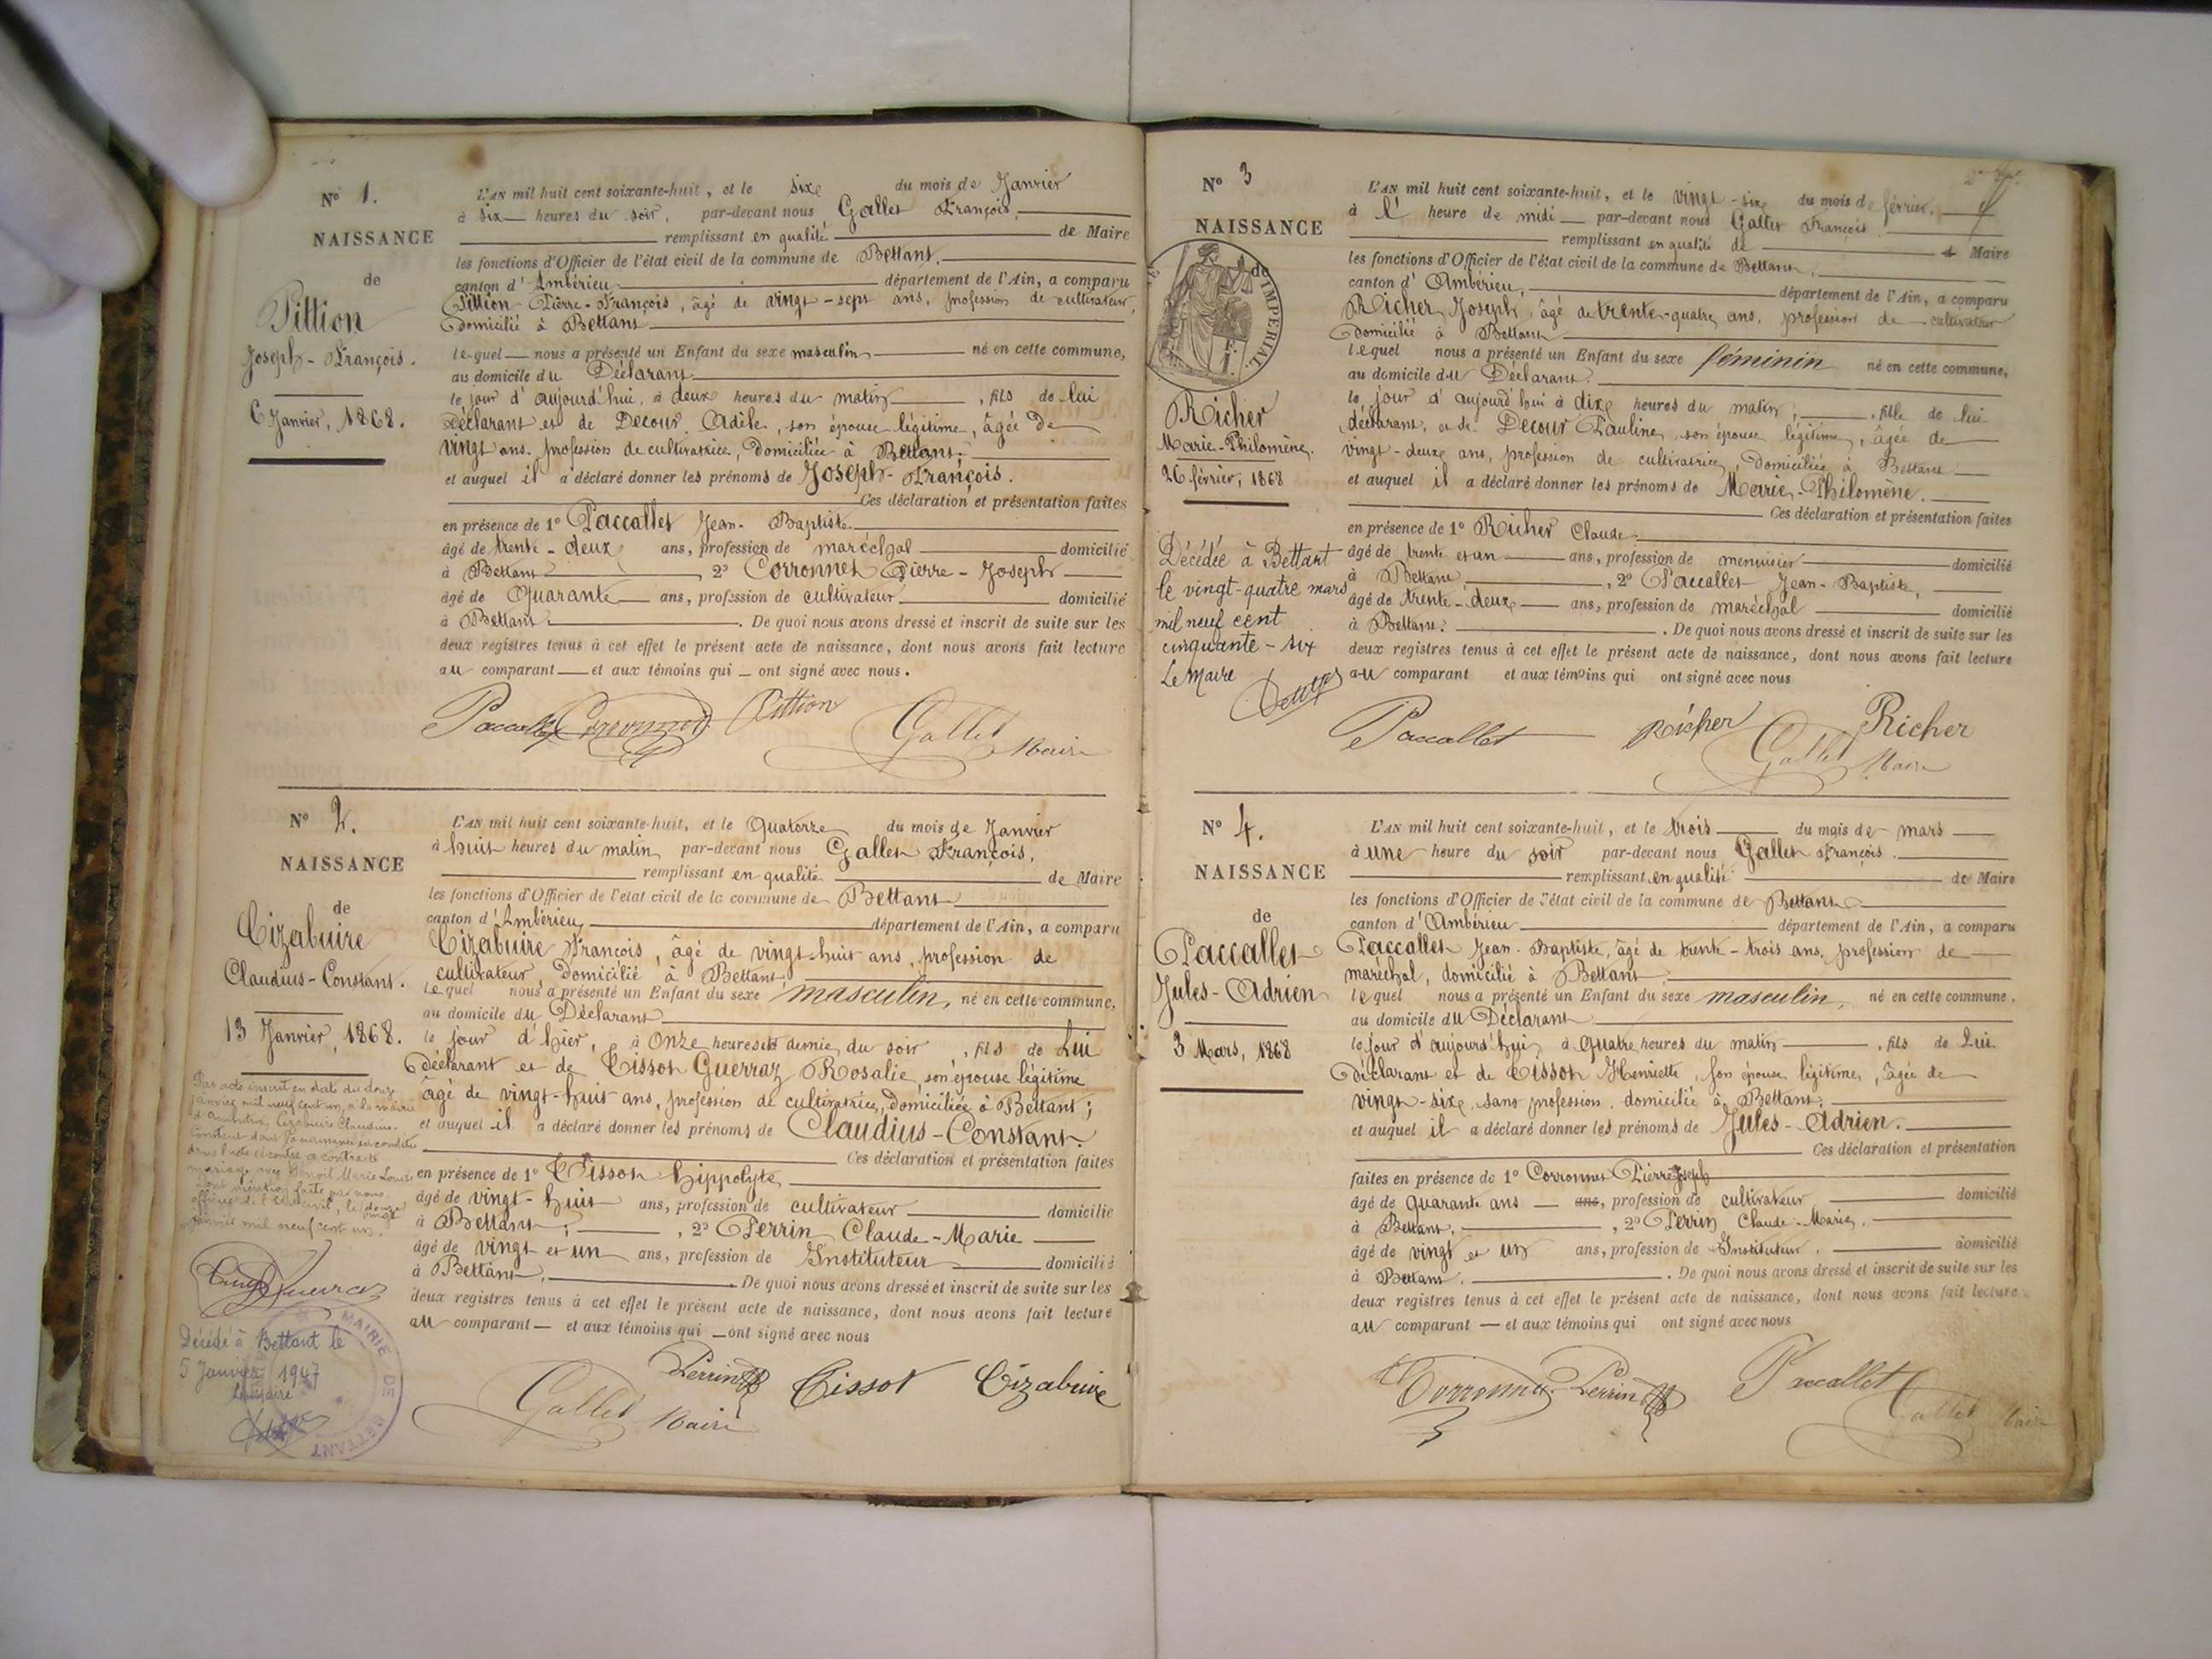 N° 1.
NAISSANCE
de
Pittion
Joseph-François.
6 Janvier, 1868.
L'AN mil huit cent soixante-huit, et le six du mois de Janvier
à six heures du soir, par-devant nous Gallet François,
remplissant en qualité de Maire
les fonctions d'Officier de l'état civil de la commune de Bettant,
canton d'Ambérieu département de l'Ain, a comparu
Pittion Pierre-François, âgé de vingt-sept ans, profession de cultivateur,
domicilié à Bettant
lequel nous a présenté un Enfant du sexe masculin né en cette commune,
au domicile du Déclarant
le jour d'aujourd'hui, à deux heures du matin, fils de lui
Déclarant et de Decour Adèle, son épouse légitime, âgée de
vingt ans, profession de cultivatrice, domiciliée à Bettant.
et auquel il a déclaré donner les prénoms de Joseph-François.
Ces déclaration et présentation faites
en présence de 1° Paccallet Jean-Baptiste
âgé de trente-deux ans, profession de maréchal domicilié
à Bettant 2° Corronnet Pierre-Joseph
âgé de Quarante ans, profession de cultivateur domicilié
à Bettant. De quoi nous avons dressé et inscrit de suite sur les
deux registres tenus à cet effet le présent acte de naissance, dont nous avons fait lecture
au comparant et aux témoins qui ont signé avec nous.
Paccallet Corronnet Pittion Gallet Maire
N° 2.
NAISSANCE
de
Cizabuire
Claudius-Constant.
13 Janvier, 1868.
Par acte inscrit en date du douze
janvier mil neuf cent un, à la mairie
Cizabuire Claudius-
Constant dont la naissance est constatée
dans l'acte ci-contre a contracté
mariage avec Benoît Marie Louise
dont mention faite par nous
officier de l'état civil, le douze
janvier mil neuf cent un.
Décédé à Bettant le
5 Janvier 1947
Le Maire
MAIRIE DE BETTANT
L'AN mil huit cent soixante-huit, et le Quatorze du mois de Janvier
à huit heures du matin par-devant nous Gallet François,
remplissant en qualité de Maire
les fonctions d'Officier de l'état civil de la commune de Bettant,
canton d'Ambérieu département de l'Ain, a comparu
Cizabuire François, âgé de vingt-huit ans, profession de
cultivateur, domicilié à Bettant,
lequel nous a présenté un Enfant du sexe masculin, né en cette commune,
au domicile du Déclarant
le jour d'hier, à Onze heures et demie du soir, fils de Lui
déclarant et de Tissot Guerraz Rosalie, son épouse légitime
âgé de vingt-huit ans, profession de cultivatrice, domiciliée à Bettant;
et auquel il a déclaré donner les prénoms de Claudius-Constant.
Ces déclaration et présentation faites
en présence de 1° Tissot hippolyte,
âgé de vingt-huit ans, profession de cultivateur domicilié
à Bettant; , 2° Perrin Claude-Marie
âgé de vingt et un ans, profession de Instituteur domicilié
à Bettant. De quoi nous avons dressé et inscrit de suite sur les
deux registres tenus à cet effet le présent acte de naissance, dont nous avons fait lecture
au comparant et aux témoins qui ont signé avec nous
Gallet Maire Perrin Tissot Cizabuire
N° 3
NAISSANCE
IMPERIAL
de
Richer
Marie-Philomène,
26 février, 1868
Décédée à Bettant
le vingt-quatre mars
mil neuf cent
cinquante-six
Le Maire
L'AN mil huit cent soixante-huit, et le vingt-six du mois de février,
à l' heure de midi par-devant nous Gallet François
remplissant en qualité de Maire
les fonctions d'Officier de l'état civil de la commune de Bettant,
canton d'Ambérieu, département de l'Ain, a comparu
Richer Joseph, âgé de trente-quatre ans, profession de cultivateur
domicilié à Bettant
lequel nous a présenté un Enfant du sexe féminin né en cette commune,
au domicile du Déclarant.
le jour d'aujourd'hui à dix heures du matin; , fille de lui
déclarant, et de Decour Pauline, son épouse légitime, âgée de
vingt-deux ans, profession de cultivatrice, domiciliée à Bettant
et auquel il a déclaré donner les prénoms de Marie-Philomène.
Ces déclaration et présentation faites
en présence de 1° Richer Claude
âgé de trente et un ans, profession de menuisier domicilié
à Bettant , 2° Paccallet Jean-Baptiste,
âgé de trente-deux ans, profession de maréchal domicilié
à Bettant. De quoi nous avons dressé et inscrit de suite sur les
deux registres tenus à cet effet le présent acte de naissance, dont nous avons fait lecture
au comparant et aux témoins qui ont signé avec nous
Paccallet Richer Gallet Maire Richer
N° 4.
NAISSANCE
de
Paccallet
Jules-Adrien
3 Mars, 1868
L'AN mil huit cent soixante-huit, et le trois du mois de mars
à une heure du soir par-devant nous Gallet François.
remplissant en qualité de Maire
les fonctions d'Officier de l'état civil de la commune de Bettant
canton d'Ambérieu département de l'Ain, a comparu
Paccallet Jean-Baptiste, âgé de trente-trois ans, profession de
maréchal, domicilié à Bettant
lequel nous a présenté un Enfant du sexe masculin, né en cette commune,
au domicile du Déclarant
le jour d'aujourd'hui à Quatre heures du matin , fils de Lui
déclarant et de Tissot Henriette, son épouse légitime, âgée de
vingt-six, sans profession, domicilié à Bettant;
et auquel il a déclaré donner les prénoms de Jules-Adrien.
Ces déclaration et présentation
faites en présence de 1° Corronnet Pierre Joseph
âgé de quarante ans ans, profession de cultivateur domicilié
à Bettant, , 2° Perrin Claude-Marie,
âgé de vingt et un ans, profession de Instituteur, domicilié
à Bettant. De quoi nous avons dressé et inscrit de suite sur les
deux registres tenus à cet effet le présent acte de naissance, dont nous avons fait lecture
au comparant et aux témoins qui ont signé avec nous
Corronnet Perrin Paccallet Gallet Maire